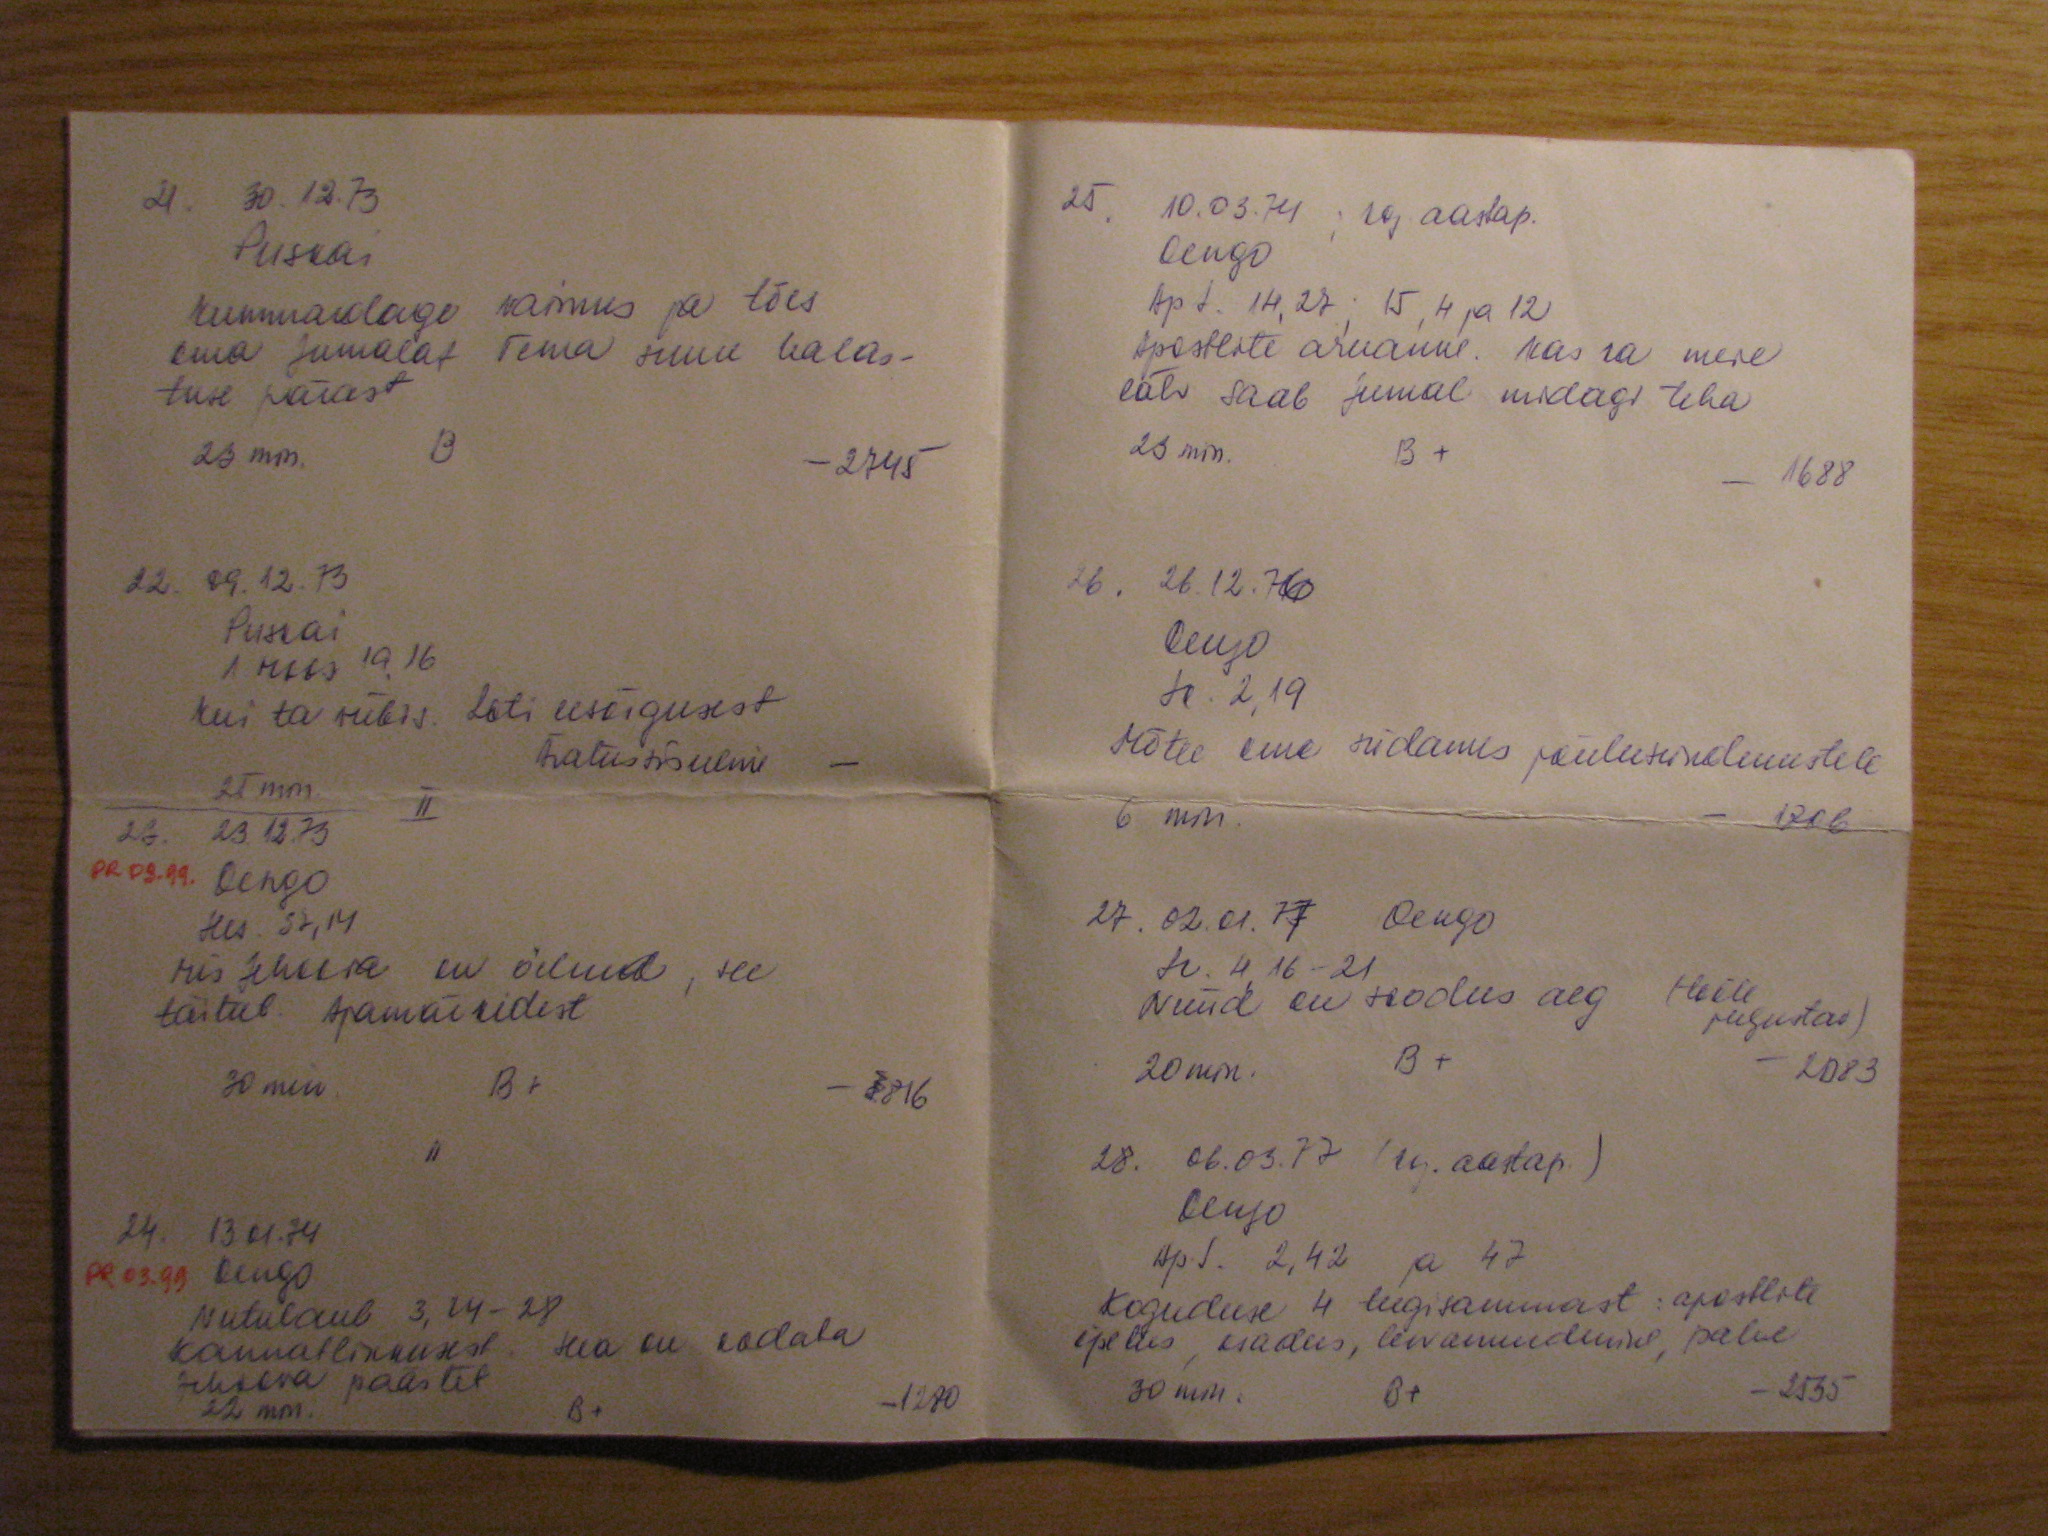 21. 30.12.73
Puskai
Kummardage vaimus ja tões
oma Jumalat Tema suure halas-
tuse pärast
23 min. B - 2745
22. 09.12.73
Puskai
1 Moos 19,16
Kui ta viibis. Loti eesõigusest
Äratussisuline -
25 min. II
23. 23.12.73
PR 03.99. Oengo
Hes. 37,14
Mis Jehoova on öelnud, see
täitub. Ajamärkidest
30 min. B+ 
"
24. 13.01.74
PR 03.99 Oengo
Nutulaul 3, 24-28
Kannatlikkusest. Hea on oodata
Jehoova päästet
22 min. B+ -1280
25. 10.03.74 ; kog. aastap.
Oengo
Ap T. 14,27; 15,4 ja 12
Apostlite aruanne. Kas ka meie
läbi saab Jumal midagi teha
23 min. B+ - 1688
26. 26.12.76
Oengo
Lk. 2,19
Mõtle oma südames jõulusündmustele
6 min. - 1706
27. 02.01.77 Oengo
Lk. 4,16-21
Nüüd on soodus aeg
20 min. B+ - 2083
28. 06.03.77 (kog. aastap.)
Oengo
Ap.T. 2,42 ja 47
Koguduse 4 tugisammast: apostlite
õpetus, osadus, leivamurdmine, palve
30 min. B+ - 2535